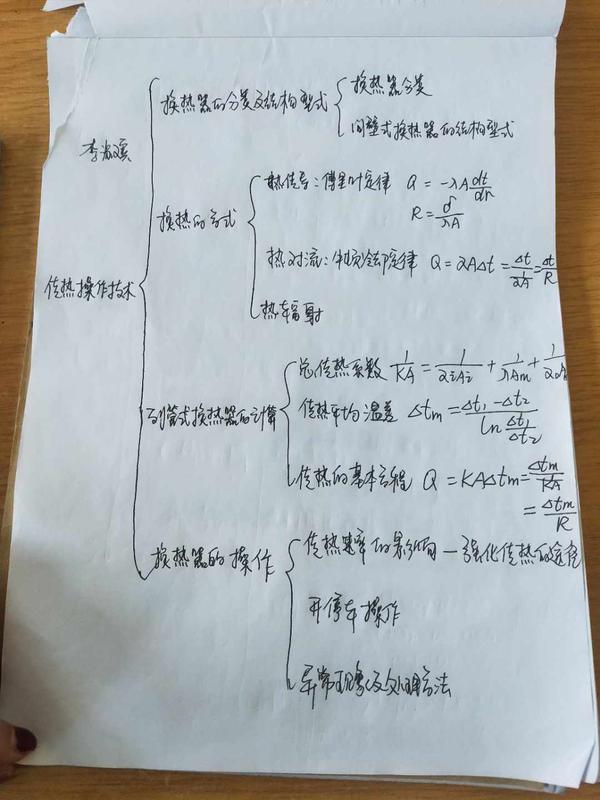 换热器的分类及结构型式
换热器分类
间壁式换热器的结构型式
李
换热的方式
热传导：傅里叶定律 Q = -λA dt/dn
R = δ/λA
热对流：牛顿冷却定律 Q = αAΔt = Δt/(1/αA) = Δt/R
热辐射
传热操作技术
列管式换热器的计算
总传热系数 1/KA = 1/αiAi + 1/λAm + 1/αoA
传热平均温差 Δtm = (Δt1 - Δt2)/(ln Δt1/Δt2)
传热的基本方程 Q = KAΔtm = Δtm/(1/KA)
= Δtm/R
换热器的操作
传热速率的影响 — 强化传热的途径
开停车操作
异常现象及处理方法